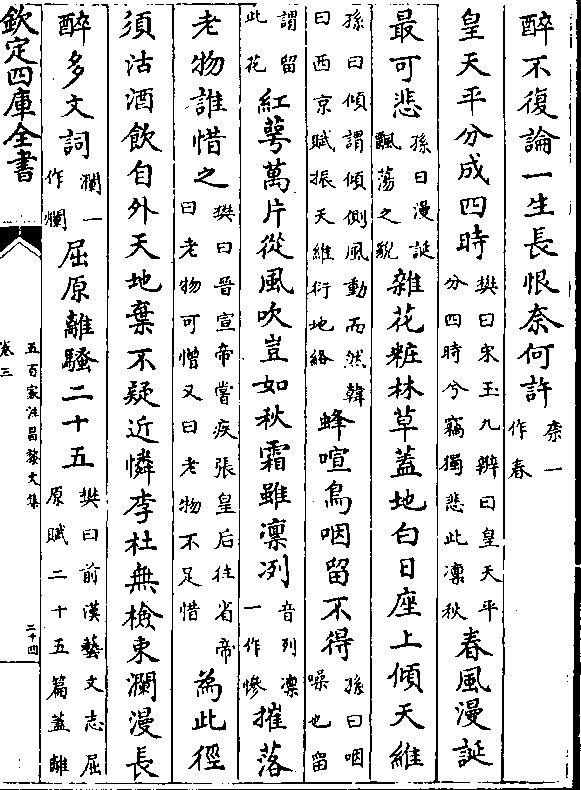 醉不復論一生長恨奈何許奈一作春
皇天平分成四時樊曰宋玉九辯曰皇天平分四時兮竊獨悲此凛秋春風漫誕
最可悲孫曰漫誕飄蕩之貌雜花粧林草蓋地白日座上傾天維
孫曰傾謂傾側風動而然韓曰西京賦振天維衍地絡蜂喧鳥咽留不得孫曰咽噪也留
謂留此花紅萼萬片從風吹豈如秋霜雖凛冽音列凛一作慘摧落
老物誰惜之樊曰晉宣帝嘗疾張皇后往省帝曰老物可憎又曰老物不足惜為此徑
須沽酒飲自外天地棄不疑近憐李杜無檢束瀾漫長
醉多文詞瀾一作爛屈原離騷二十五樊曰前漢藝文志屈原賦二十五篇蓋離
欽定四庫全書
五百家注昌黎文集
卷三
二十四